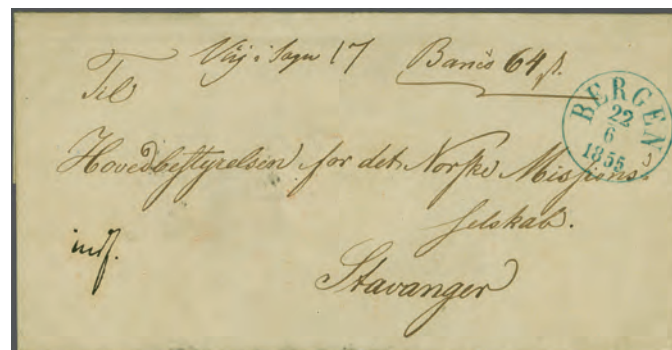 Vüg i Sogn 17 Banco 64 ß.
Til
BERGEN
22
6
1855
Hovedbestyrelsen for det Norske Missjons-
selskab.
indf.
Stavanger